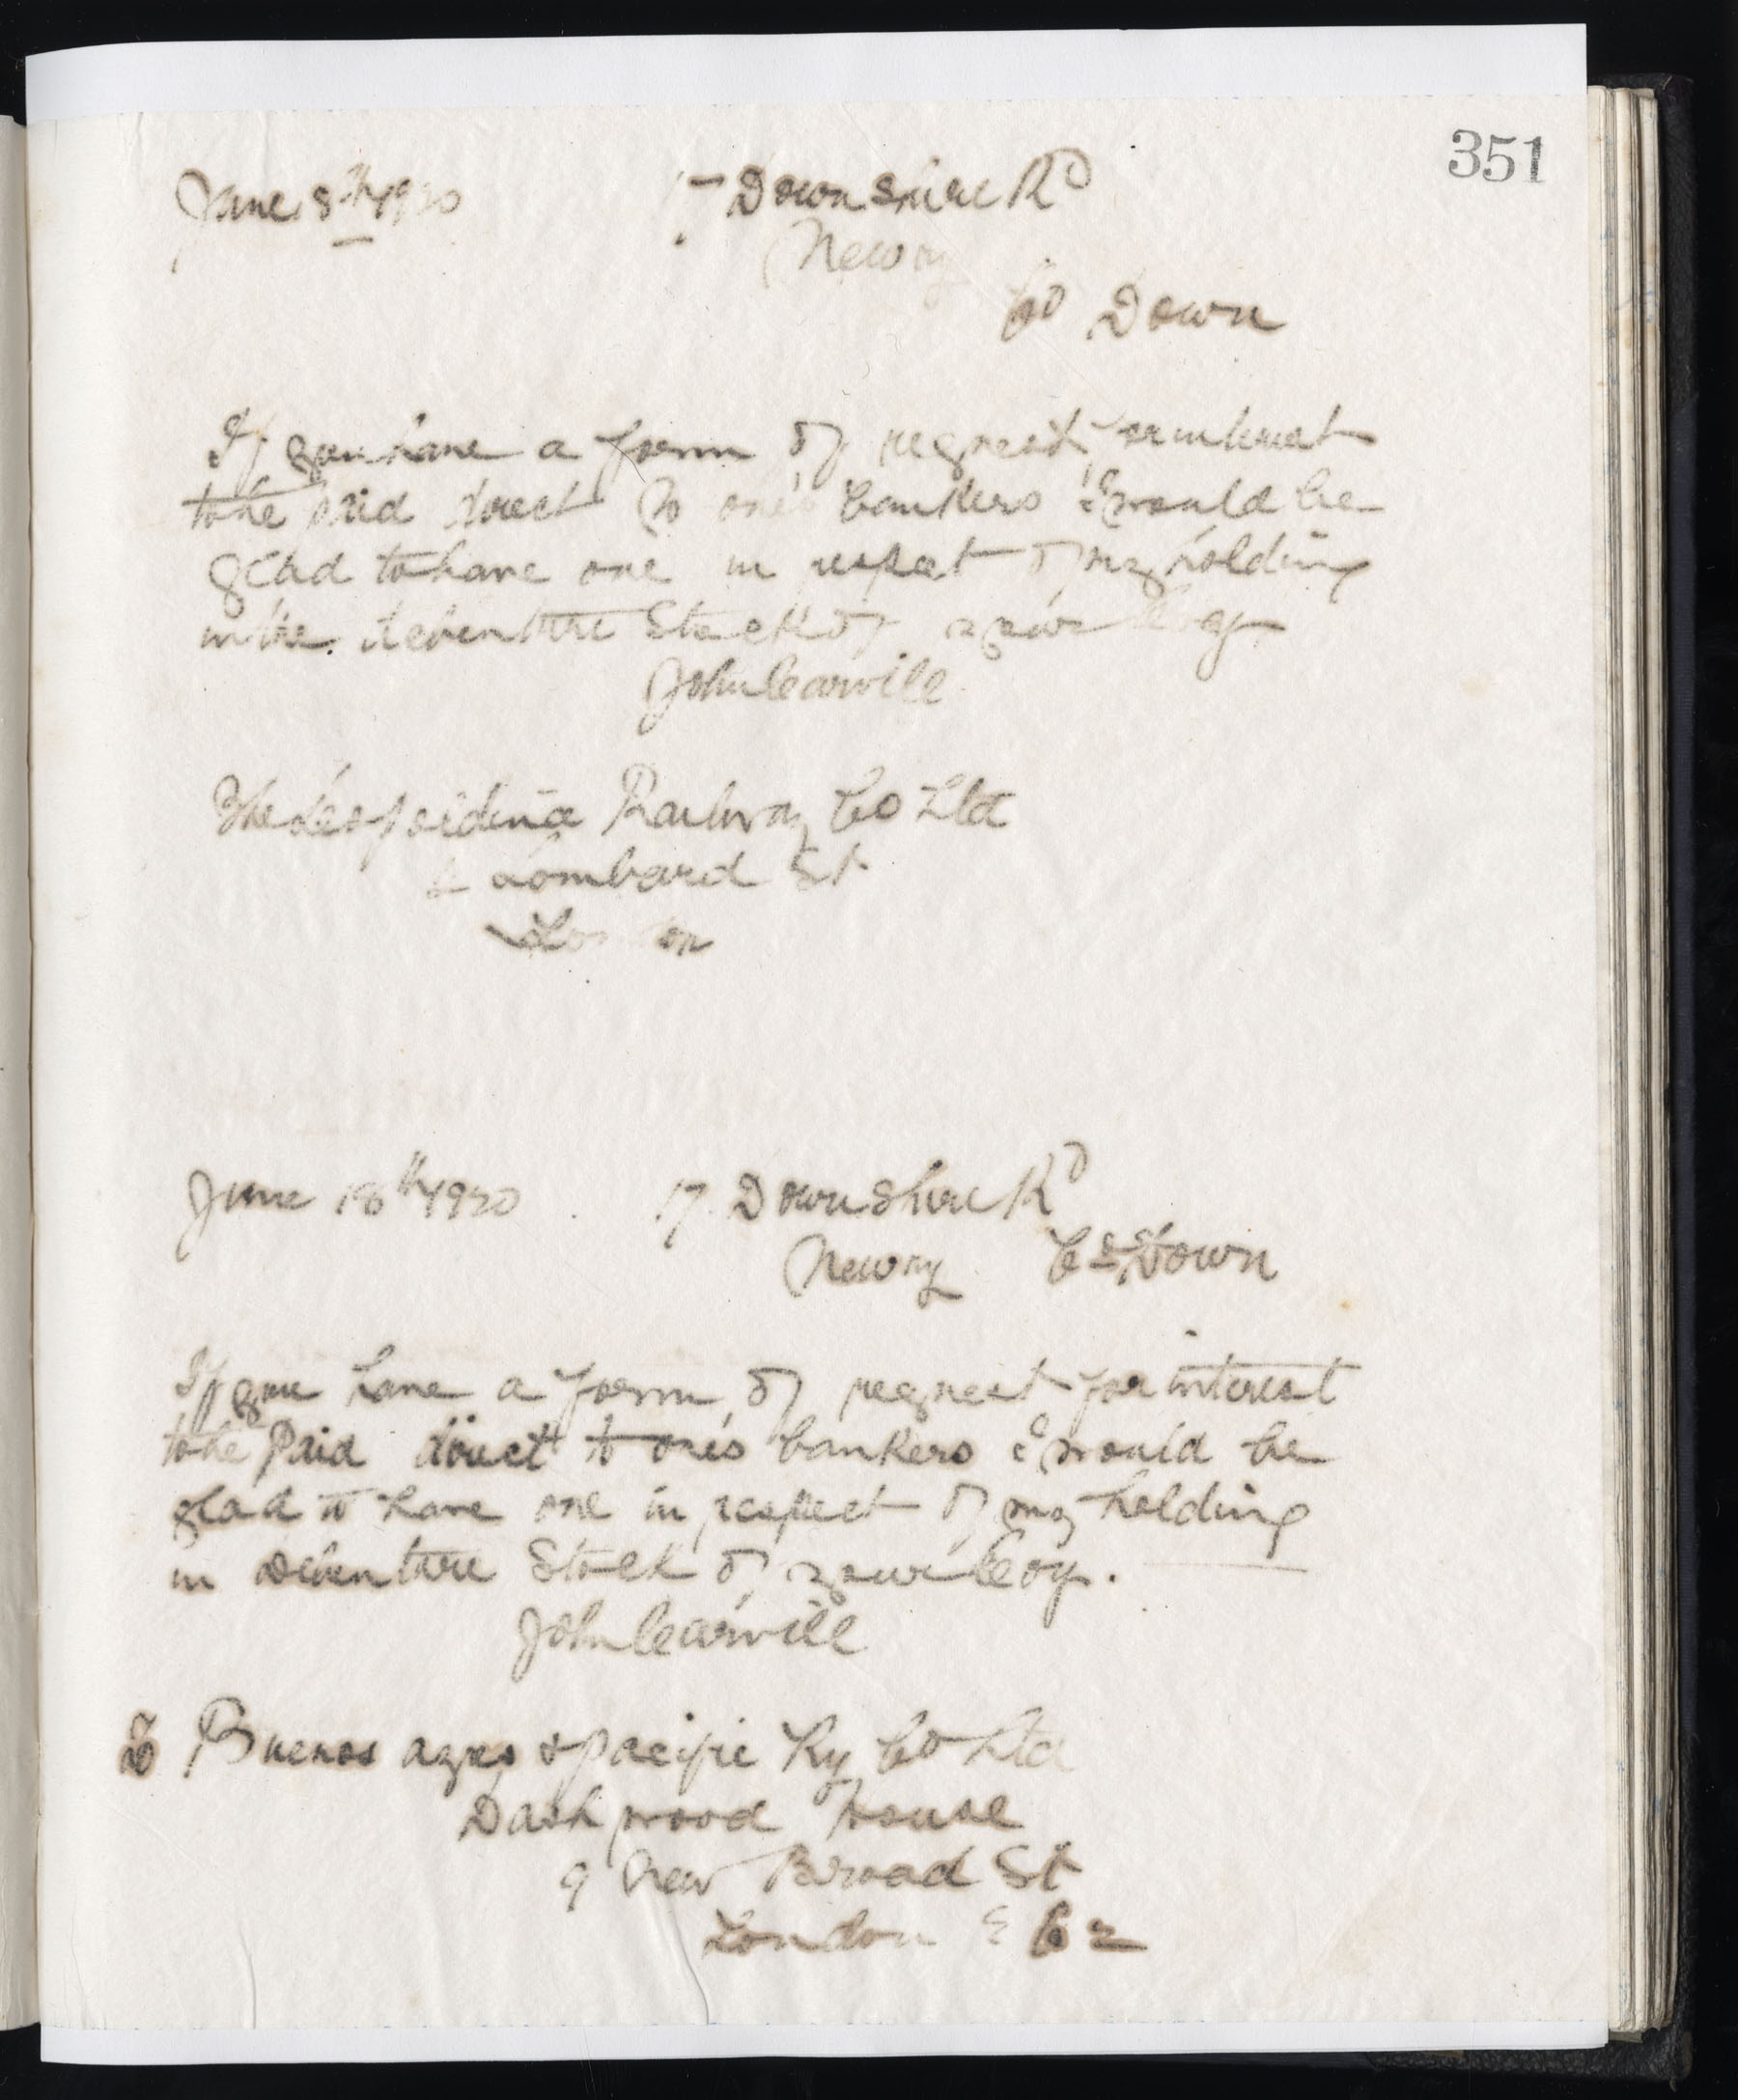 351
June 8th 1920 17 Downshire Rd
Newry
Co Down
If you have a form of request for interest
to be paid direct to one's bankers I would be
glad to have one in respect of my holding
in the debenture Stock of your Coy
John Carvill
The Leopoldina Railway Co Ltd
Lombard St
London
June 18th 1920 17 Downshire Rd
Newry Co Down
If you have a form of request for interest
to be paid direct to one's bankers I would be
glad to have one in respect of my holding
in debenture Stock of your Coy.
John Carvill
Buenos Ayres & Pacific Ry Co Ltd
Dashwood House
9 New Broad St
London E C 2